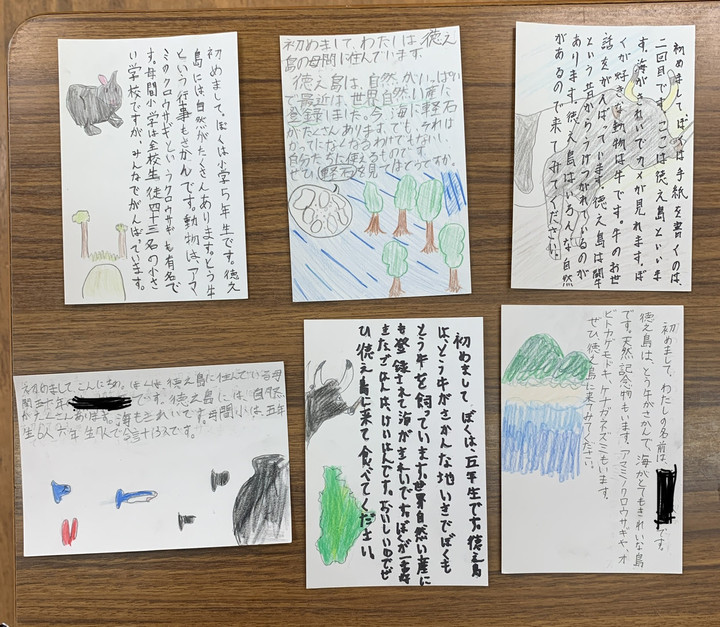 初めまして。ぼくは小学5年生です。徳之
島には自然がたくさんあります。とう牛
という行事もさかんです。動物は、アマ
ミのクロウサギというクロウサギも有名で
す。母間小学は全校生徒四十三名の小さ
い学校ですが、みんなでがんばっています。
初めまして、わたしは徳之
島の母間に住んでいます。
徳之島は、自然がいっぱい
で最近は、世界自然い産に
登録しました。今、海に軽石
がたくさんあります。でも、それは
かってになくなるわけでもない。
自分たちに使えるもので
ぜひ軽石を見てはどうですか。
初めまして。ぼくは手紙を書くのは、
二回目です。ここは徳之島といいま
す。海がきれいでカメが見れます。ぼ
くが好きな動物は牛です。牛のお世
話をがんばっています。徳之島は闘牛
という昔からうけつがれているのが
あります。徳之島はいろんな自然
があるので来てみてください。
初めまして、こんにちわ。ぼくは、徳之島に住んでいる母
間五年 です。徳之島には、自然
がたくさんあります。海もきれいです。母間小は、五年
生6人六年生7人で合計13人です。
初めまして ぼくは、五年生です。徳之島
は、とう牛がさかんな地いきでぼくも
とう牛を飼っています。世界自然い産に
も登録されて海がきれいです。ぼくが一番好
きなたべ物は、けいはんです。おいしいのでぜ
ひ徳之島に来て食べてください。
初めまして、わたしの名前は です。
徳之島は、とう牛がさかんで、海がとてもきれいな島
です。天然記念物もいます。アマミノクロウサギや、オ
ビトカゲモドキ、ケナガネズミもいます。
ぜひ徳之島に来てみてください。